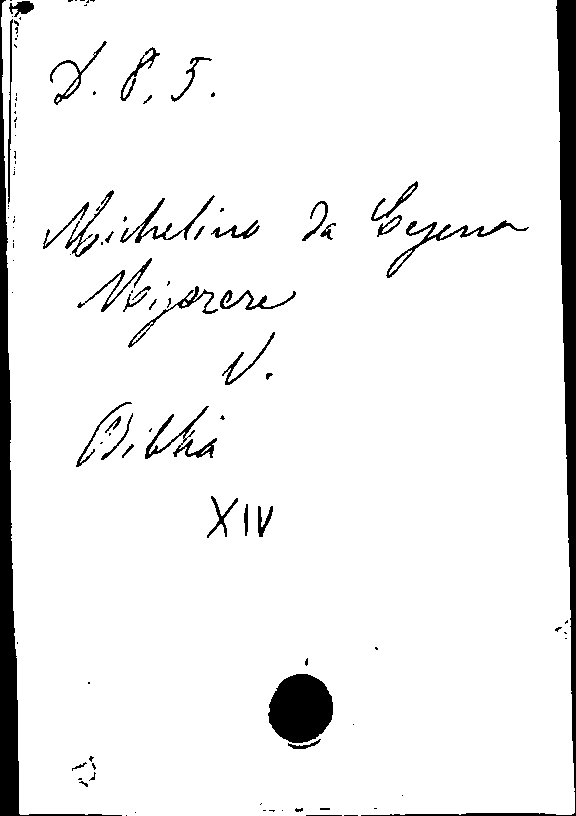 D. 8, 5.
Michelino da Cesena
Miserere
V.
Biblia
XIV